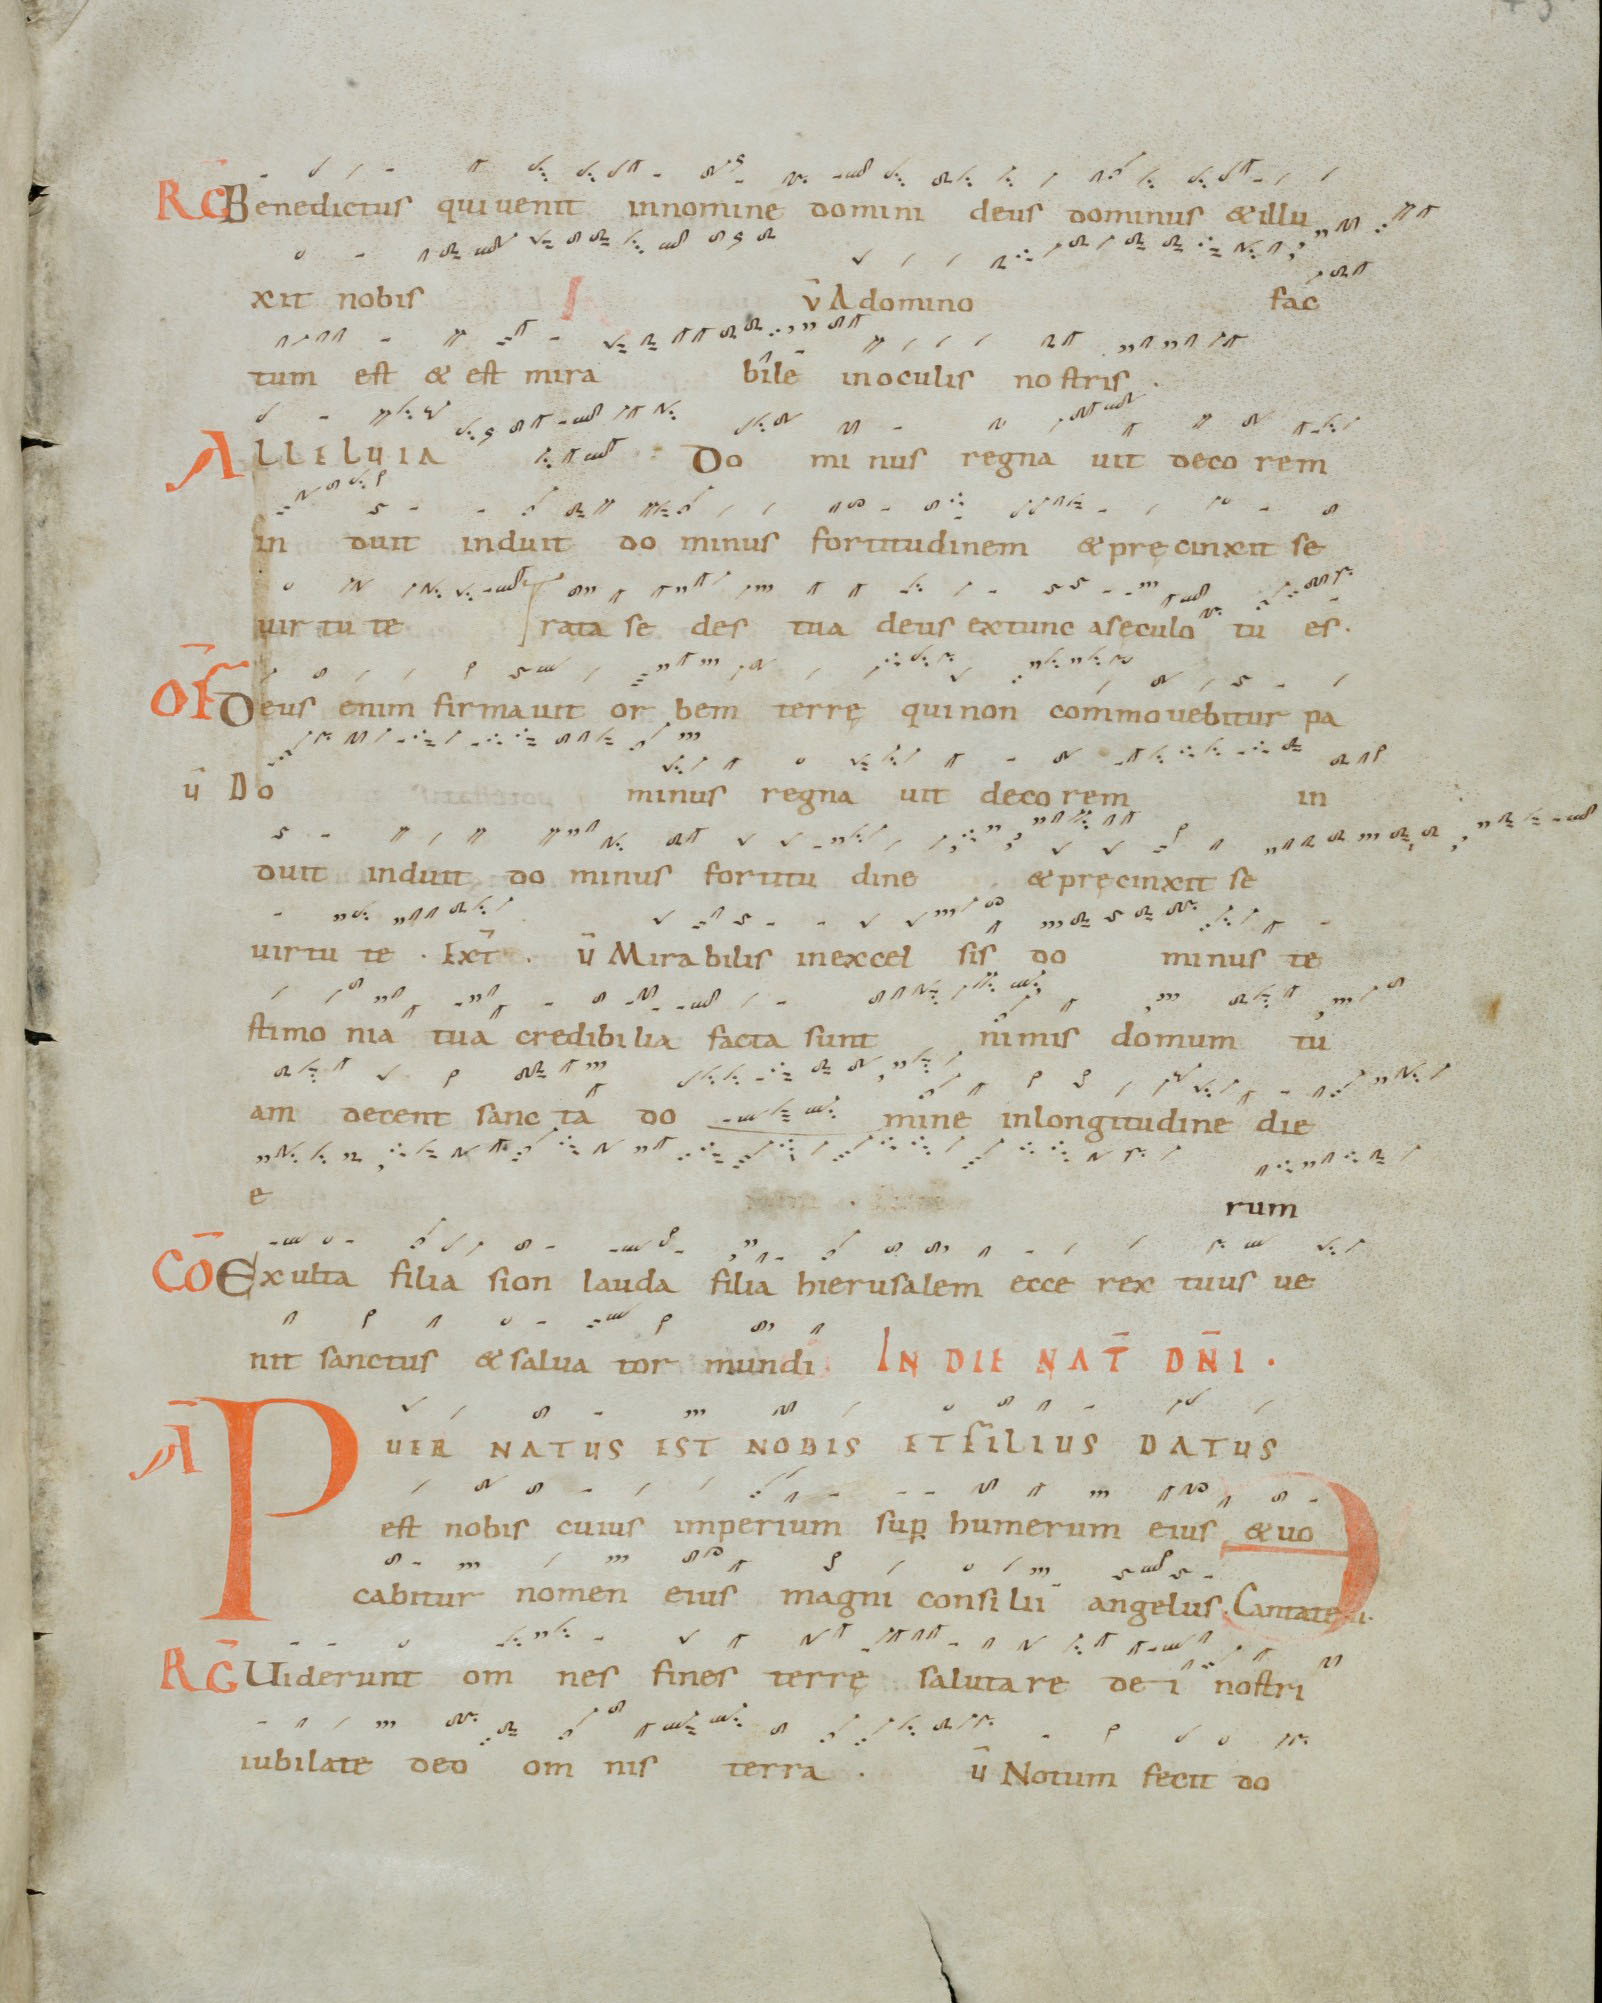 R̄G Benedictus qui uenit innomine domini deus dominus &illu
xit nobis v̄ A domino fac
tum est & est mira bile inoculis nostris .
ALLELUIA Do mi nus regna uit deco rem
in duit induit do minus fortitudinem &pręcinxit se
uir tu te parata se des tua deus extunc aseculo tu es.
OF̄ Deus enim firmauit or bem terrę quinon commouebitur pa
ū Do minus regna uit deco rem in
duit induit do minus fortitu dine &pręcinxit se
uirtu te . Ext̄ . ū Mirabilis inexcel sis do minus te
stimo nia tua credibilia facta sunt nimis domum tu
am decent sanc ta do mine inlongitudine die
e rum
CŌ Exulta filia sion lauda filia hierusalem ecce rex tuus ue
nit sanctus &salua tor mundi IN DIE NAT̄ DN̄I .
Ā PUER NATUS EST NOBIS ET FILIUS DATUS
est nobis cuius imperium sup̱ humerum eius &uo
cabitur nomen eius magni consilii angelus. Cantate
R̄G Uiderunt om nes fines terrę salutare de i nostri
iubilate deo om nis terra . ū Notum fecit do